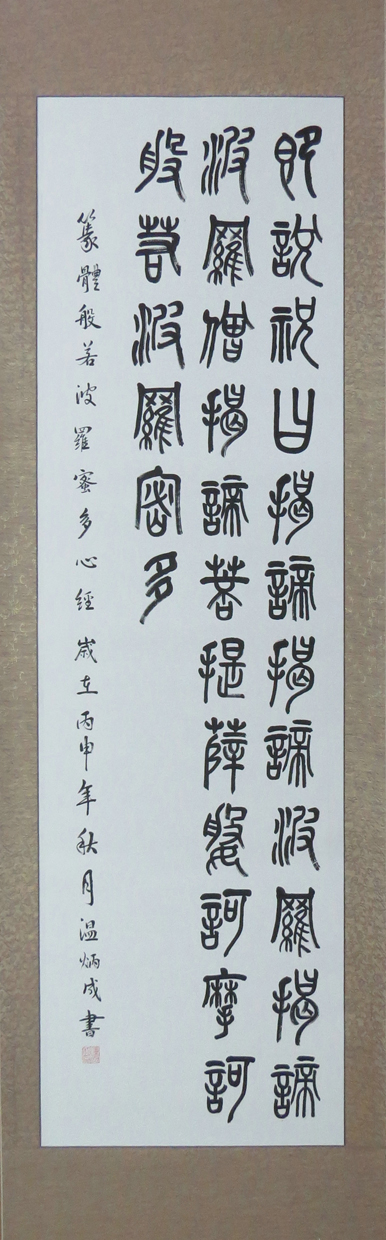 即說祝曰揭諦揭諦波羅揭諦
波羅僧揭諦菩提薩婆訶摩訶
般若波羅密多
篆體般若波羅蜜多心經 歲在丙申年秋月温炳成書